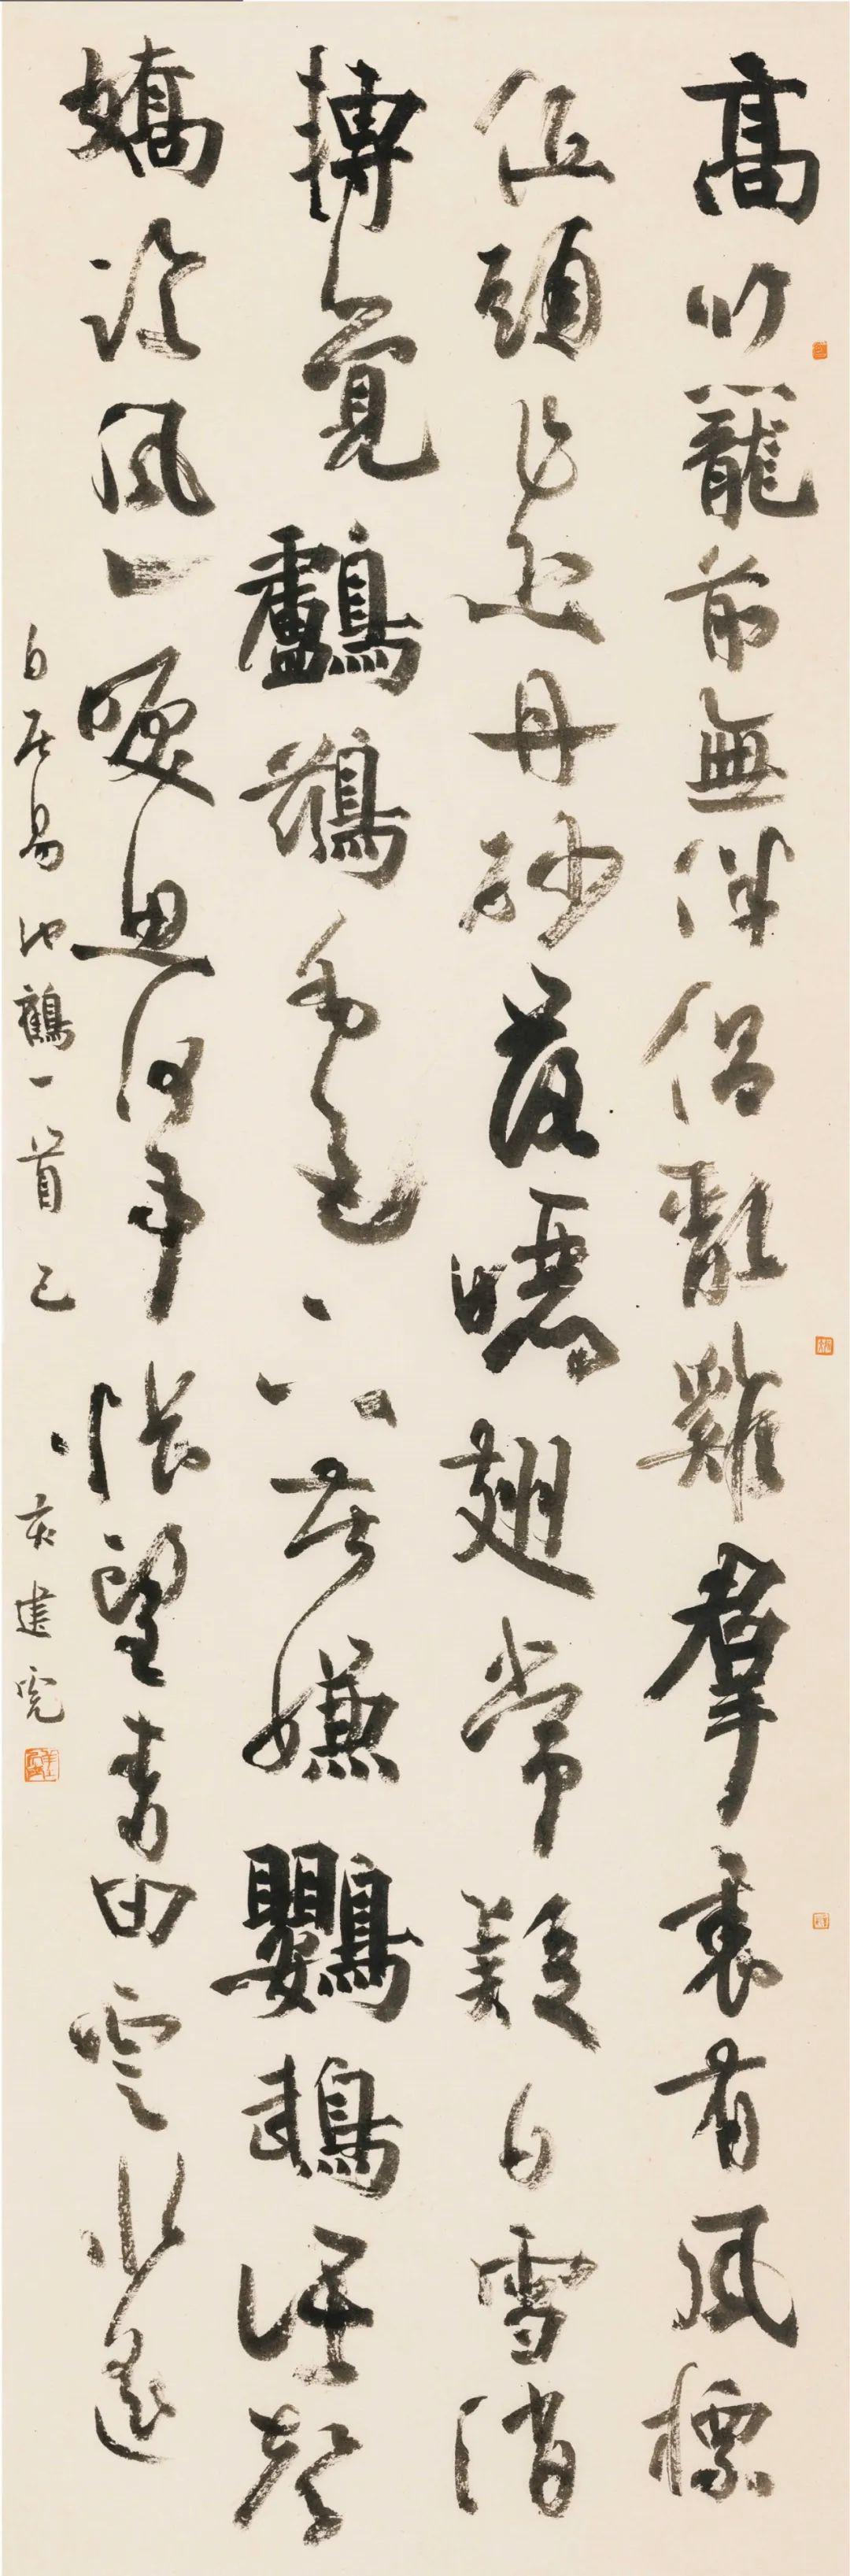 高竹籠前無伴侶亂雞羣裏有風標
低頭乍恐丹砂落曬翅常疑白雪消
轉覺鸕鶿毛色下苦嫌鸚鵡語聲
嬌臨風一唳思何事悵望青田雲水遙
白居易池鶴一首己亥建